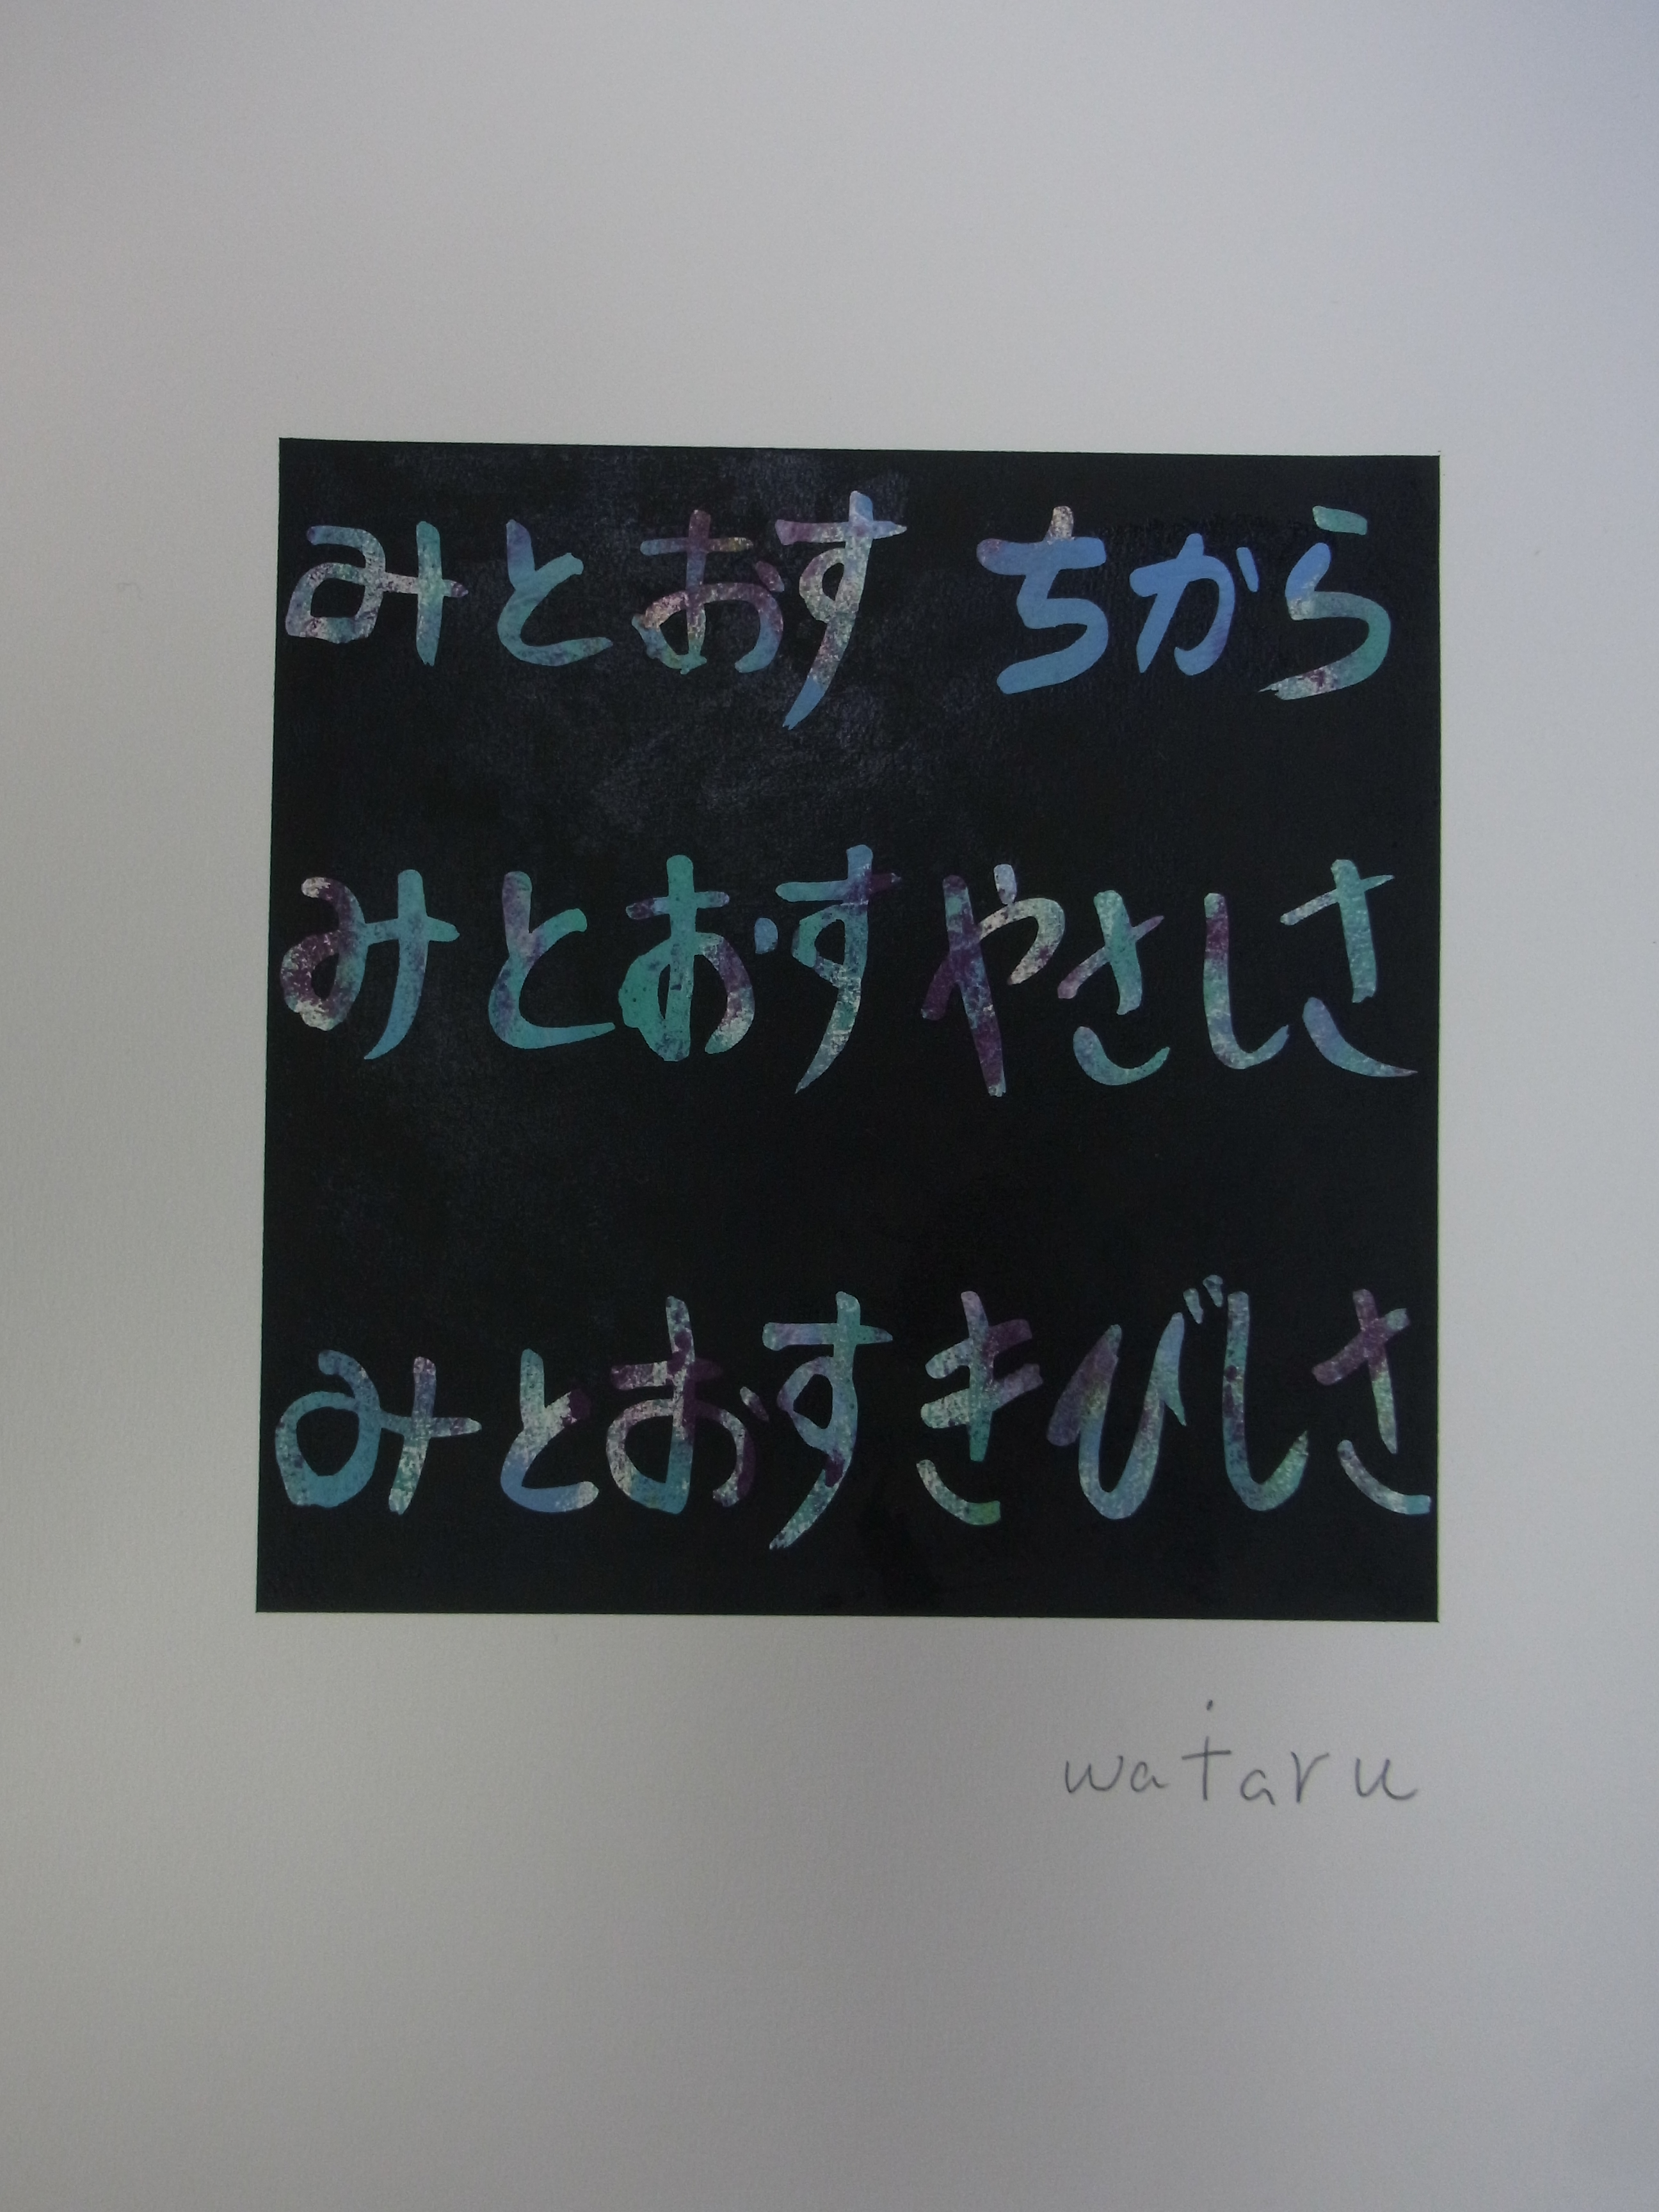 みとおす ちから
みとおす やさしさ
みとおす きびしさ
wataru